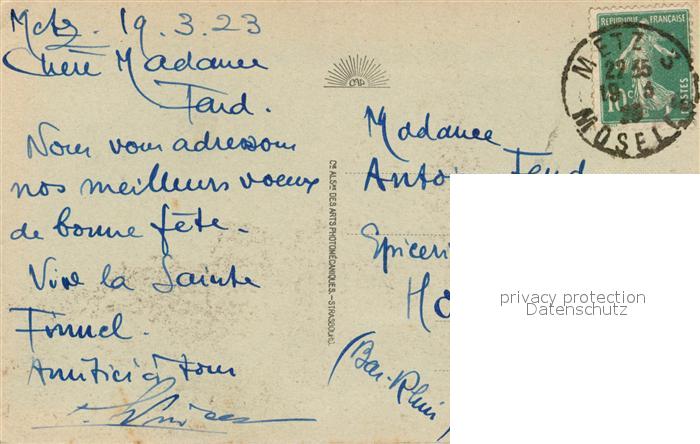 Metz. 19.3.23
Chère Madame
Nous vous adressons
nos meilleurs voeux
de bonne fête.
Vive la Sainte
à tous
CAP
Cie ALSne DES ARTS PHOTOMÉCANIQUES. - STRASBOURG.
REPUBLIQUE FRANÇAISE
10c
POSTES
METZ 3
MOSELLE
Madame
Epiceri
(Bas-Rhin)
privacy protection
Datenschutz